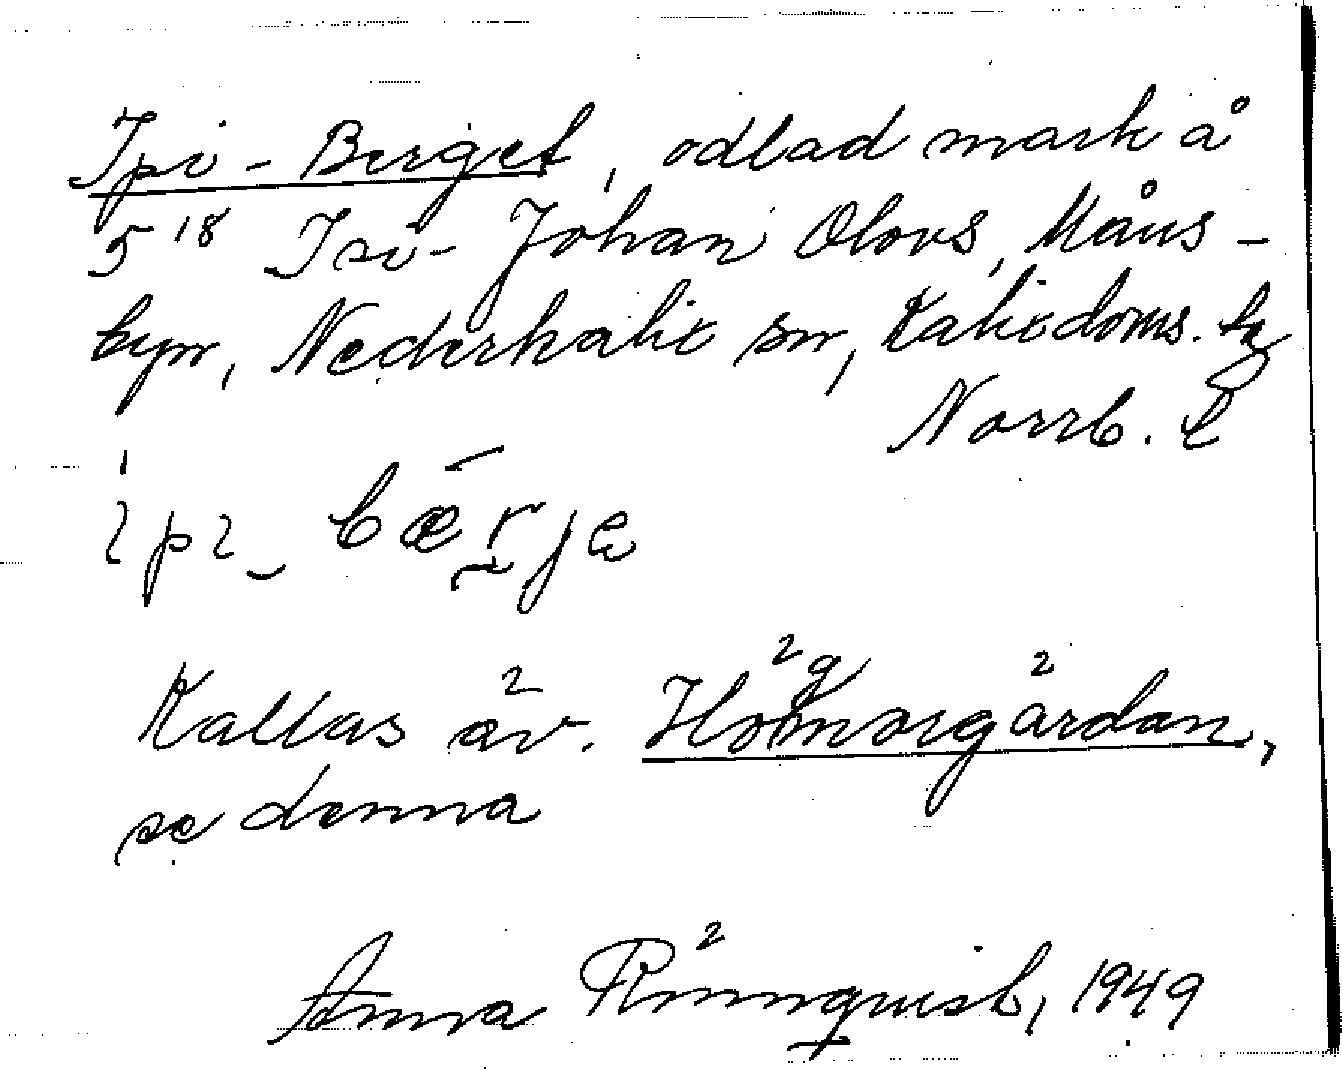 Ipi-Berget, odlad mark å
5¹⁸ Isi-Johan Olovs, Måns-
byn, Nederkalix sn, Kalix doms. hg
Norrb. l
ipi- bærje
Kallas äv. Högmorgårdan,
se denna
Anna Rönnqvist, 1949